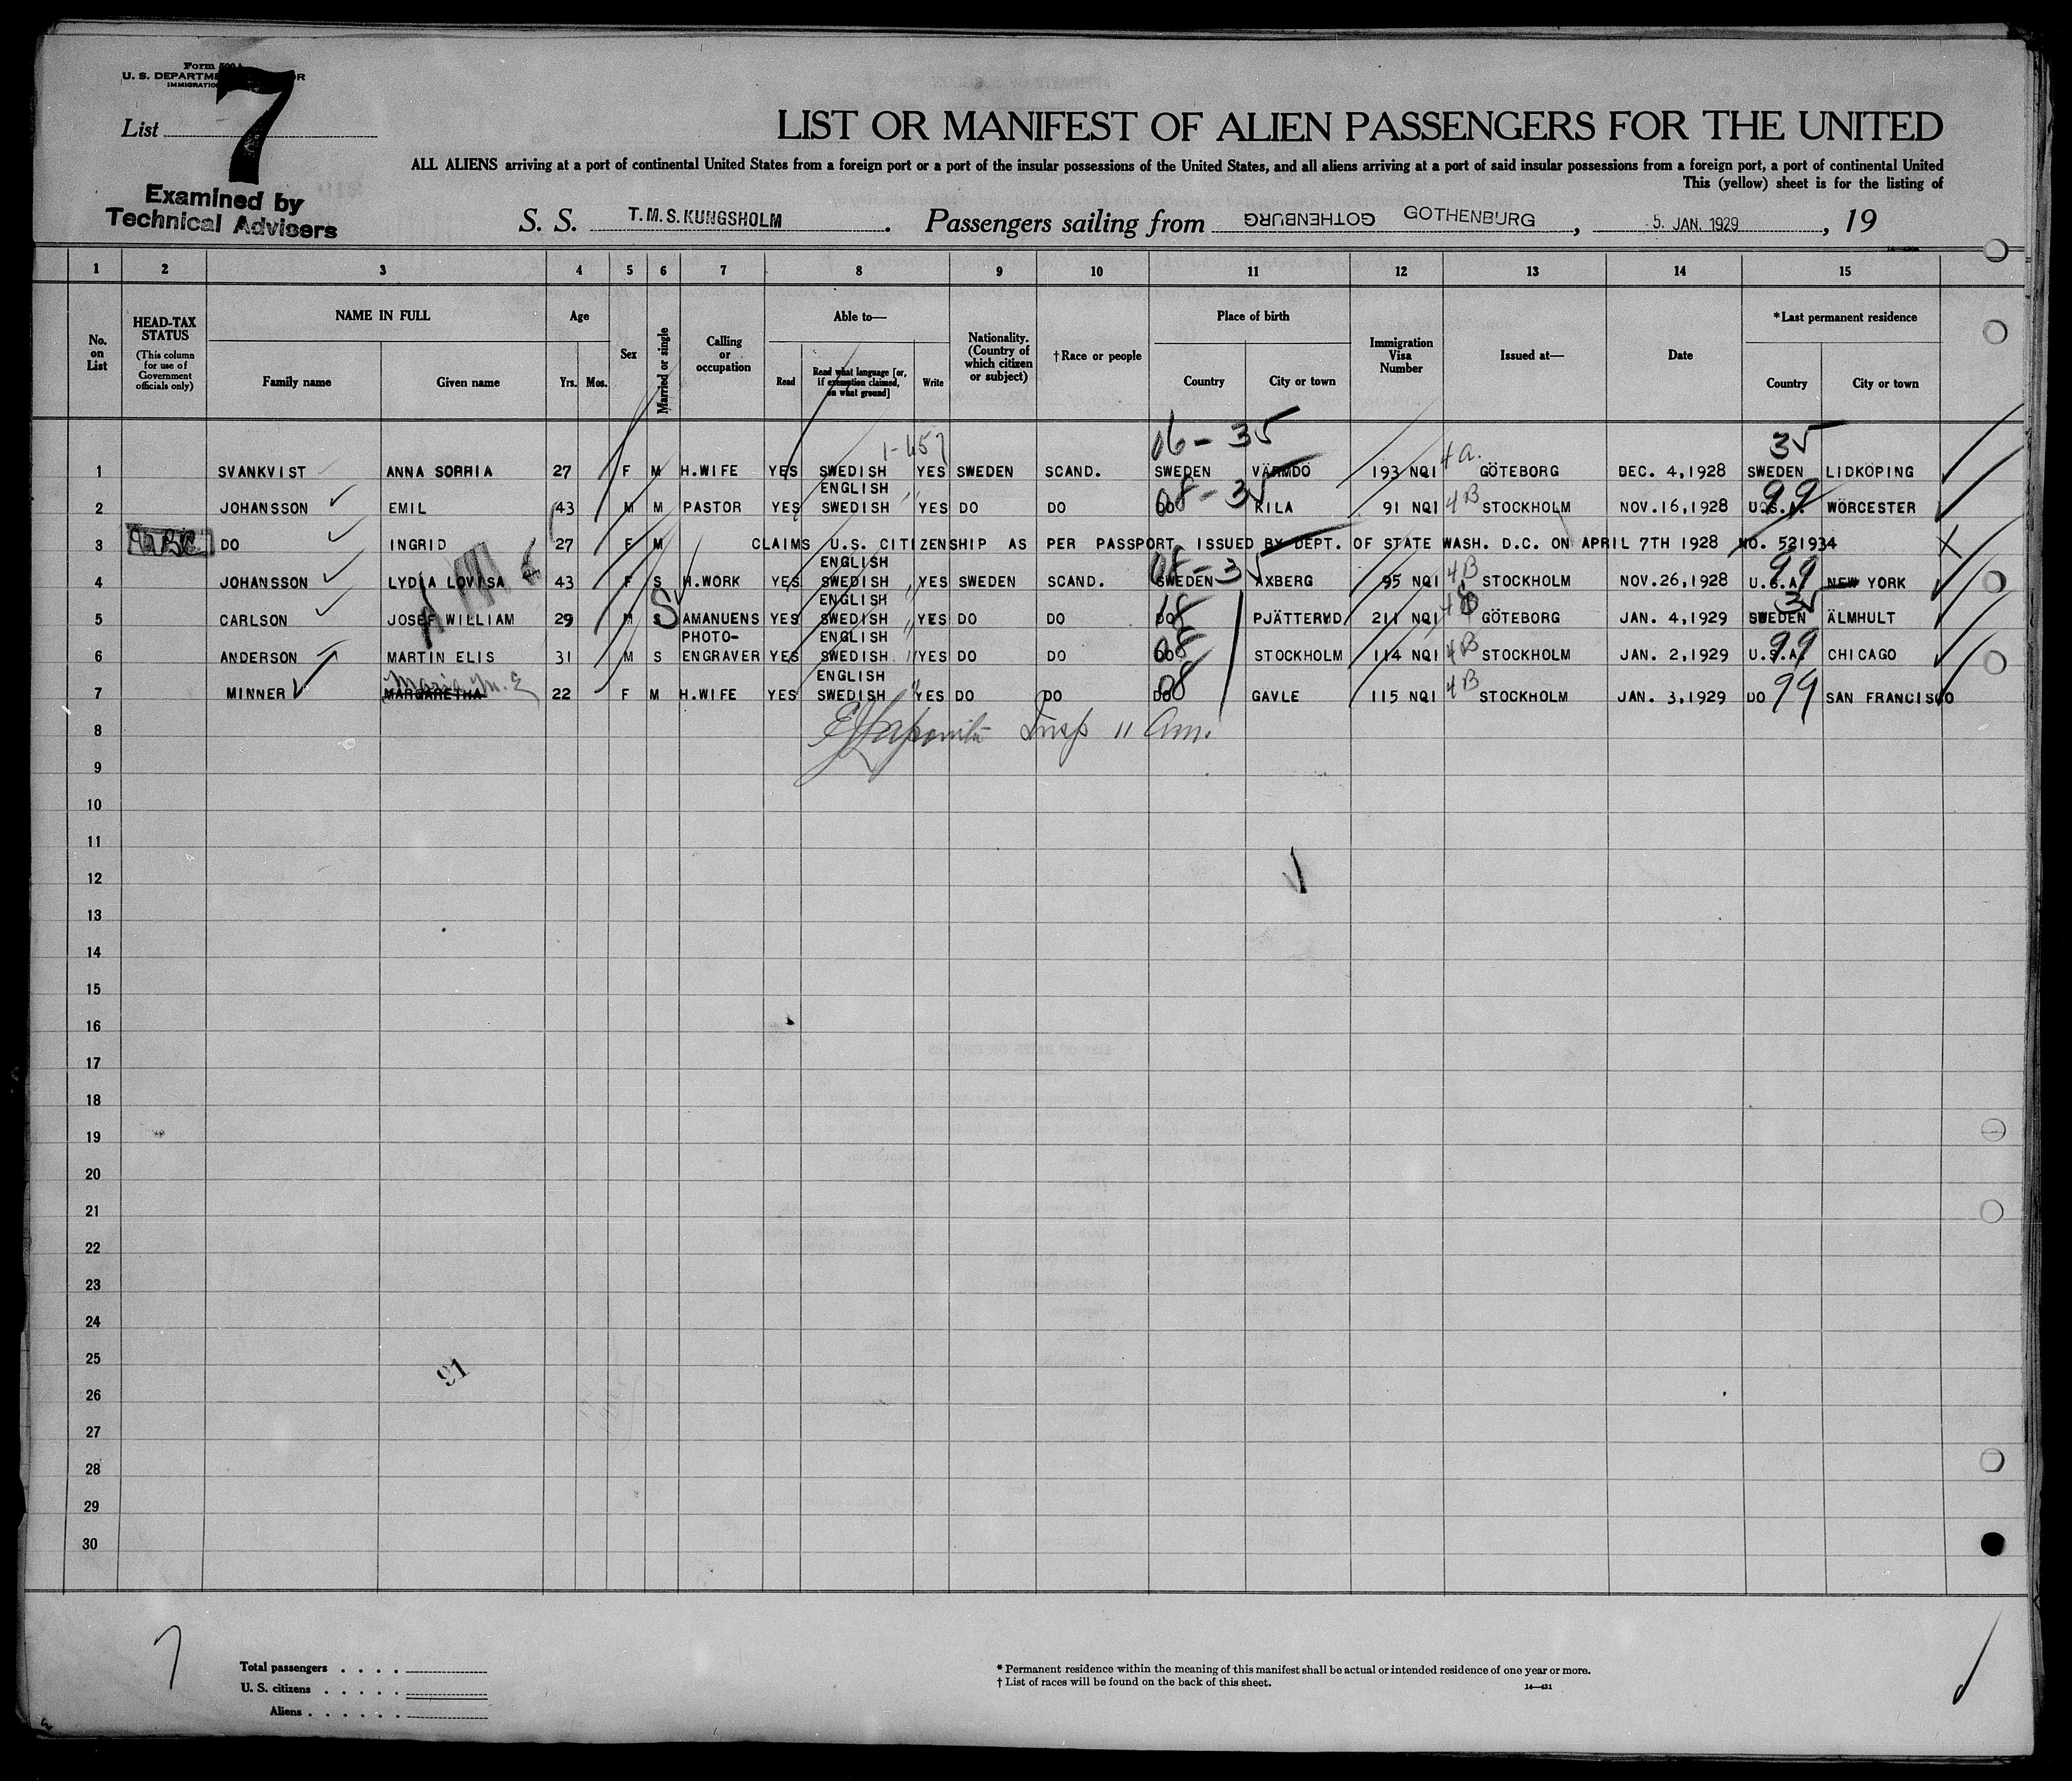 Form 500A
U. S. DEPARTMENT OF LABOR
IMMIGRATION
List 7
LIST OR MANIFEST OF ALIEN PASSENGERS FOR THE UNITED
ALL ALIENS arriving at a port of continental United States from a foreign port or a port of the insular possessions of the United States, and all aliens arriving at a port of said insular possessions from a foreign port, a port of continental United
This (yellow) sheet is for the listing of
Examined by
Technical Advisers
S. S. T.M.S. KUNGSHOLM. Passengers sailing from GOTHENBURG GOTHENBURG, 5. JAN. 1929, 19
1 2 3 4 5 6 7 8 9 10 11 12 13 14 15
No. on List
HEAD-TAX STATUS (This column for use of Government officials only)
NAME IN FULL Family name Given name
Age Yrs. Mos.
Sex
Married or single
Calling or occupation
Able to— Read Read what language [or, if exemption claimed, on what ground] Write
Nationality. (Country of which citizen or subject)
†Race or people
Place of birth Country City or town
Immigration Visa Number
Issued at—
Date
*Last permanent residence Country City or town
06-35 35
1-457 4a.
1 SVANKVIST ANNA SORRIA 27 F M H.WIFE YES SWEDISH YES SWEDEN SCAND. SWEDEN VÄRMDÖ 193 NQI GÖTEBORG DEC. 4,1928 SWEDEN LIDKÖPING
ENGLISH 08-35 4B 99
2 JOHANSSON EMIL 43 M M PASTOR YES SWEDISH YES DO DO DO KILA 91 NQI STOCKHOLM NOV.16,1928 U.S.A. WORCESTER
3 DO INGRID 27 F M CLAIMS U.S. CITIZENSHIP AS PER PASSPORT ISSUED BY DEPT. OF STATE WASH. D.C. ON APRIL 7TH 1928 NO. 521934 X
ENGLISH 08-35 4B 99
4 JOHANSSON LYDIA LOVISA 43 F S H.WORK YES SWEDISH YES SWEDEN SCAND. SWEDEN AXBERG 95 NQI STOCKHOLM NOV.26,1928 U.S.A. NEW YORK
ENGLISH 35
5 CARLSON JOSEF WILLIAM 29 M S AMANUENS YES SWEDISH YES DO DO DO PJÄTTERUD 211 NQI GÖTEBORG JAN. 4,1929 SWEDEN ÄLMHULT
PHOTO- ENGLISH 08 4B 99
6 ANDERSON MARTIN ELIS 31 M S ENGRAVER YES SWEDISH YES DO DO DO STOCKHOLM 114 NQI STOCKHOLM JAN. 2,1929 U.S.A. CHICAGO
Maria M. E ENGLISH 08 4B 99
7 MINNER MARGARETHA 22 F M H.WIFE YES SWEDISH YES DO DO DO GAVLE 115 NQI STOCKHOLM JAN. 3,1929 DO SAN FRANCISCO
8 Insp 11 Am.
9
10
11
12
13
14
15
16
17
18
19
20
21
22
23
24
25
91
26
27
28
29
30
7
Total passengers
U. S. citizens
Aliens
* Permanent residence within the meaning of this manifest shall be actual or intended residence of one year or more.
† List of races will be found on the back of this sheet.
14—431